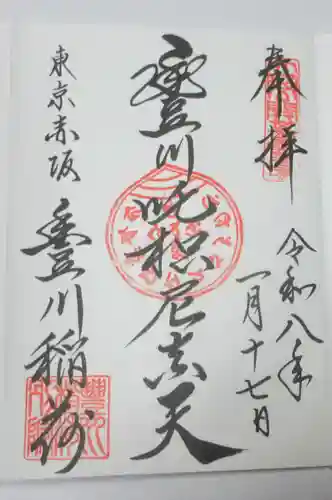 奉拝
令和八年
一月十七日
豐川吒枳尼真天
東京赤坂
豊川稲荷